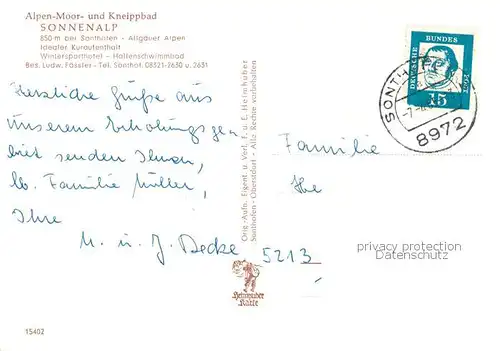 Alpen-Moor- und Kneippbad
SONNENALP
850 m bei Sonthofen - Allgäuer Alpen
Idealer Kuraufenthalt
Wintersporthotel - Hallenschwimmbad
Bes. Ludw. Fässler - Tel. Sonthof. 08321-2630 u. 2631
Herzliche Grüße aus
unserem Erholungsge-
biet senden Ihnen,
lb. Familie Müller,
Ihre
M. u. J. Decke
Orig.-Aufn. Eigent. u. Verl. F. u. E. Heinhuber
Sonthofen-Oberstdorf - Alle Rechte vorbehalten
Heinhuber
Karte
DEUTSCHE
BUNDES
POST
15
SONTH
8972
Familie
5213
privacy protection
Datenschutz
15402